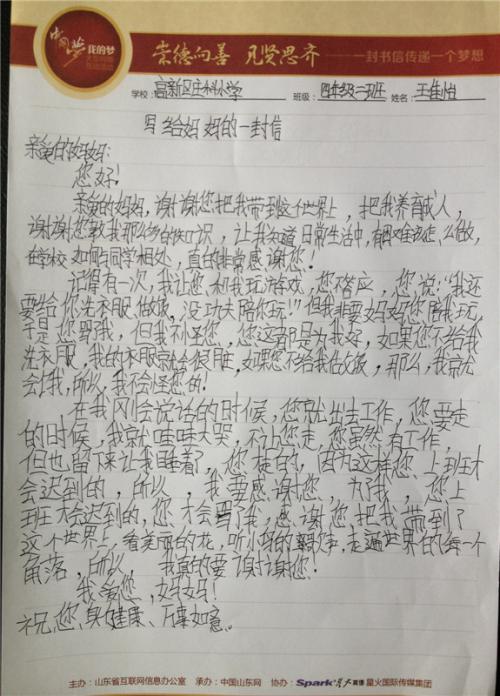 中国梦 我的梦
崇德向善 见贤思齐
一封书信传递一个梦想
学校：高新区庄科小学 班级：四年级二班 姓名：王佳怡
写给妈妈的一封信
亲爱的妈妈：
您好！
亲爱的妈妈，谢谢您把我带到这个世界上，把我养育成人，
谢谢您教我那么多的知识，让我知道日常生活中，有困难该怎么做，
在学校如何与同学相处，真的非常感谢您！
记得有一次，我让您和我玩游戏，您不答应，您说：“我还
要给你洗衣服、做饭，没功夫陪你玩！”但我非要妈妈您陪我玩，
于是您骂我，但我不怪您，您这都是为我好，如果您不给我
洗衣服，我的衣服就会很脏，如果您不给我做饭，那么，我就
会饿，所以，我不会怪您的！
在我刚会说话的时候，您就出去工作，您要走
的时候，我就哇哇大哭，不让您走，您虽然有工作，
但也留下来让我睡着了，您走的，因为这样您上班才
会迟到的，所以，我要感谢您，为了我，您上
班才会迟到的，您才会骂了我，感谢您把我带到了
这个世界上，看美丽的花，听小鸟的歌声，走遍世界的每一个
角落，所以，我真的要谢谢您！
我爱您，妈妈！
祝您、身体健康、万事如意。
主办：山东省互联网信息办公室 承办：中国山东网 协办：Spark 星火英语 星火国际传媒集团